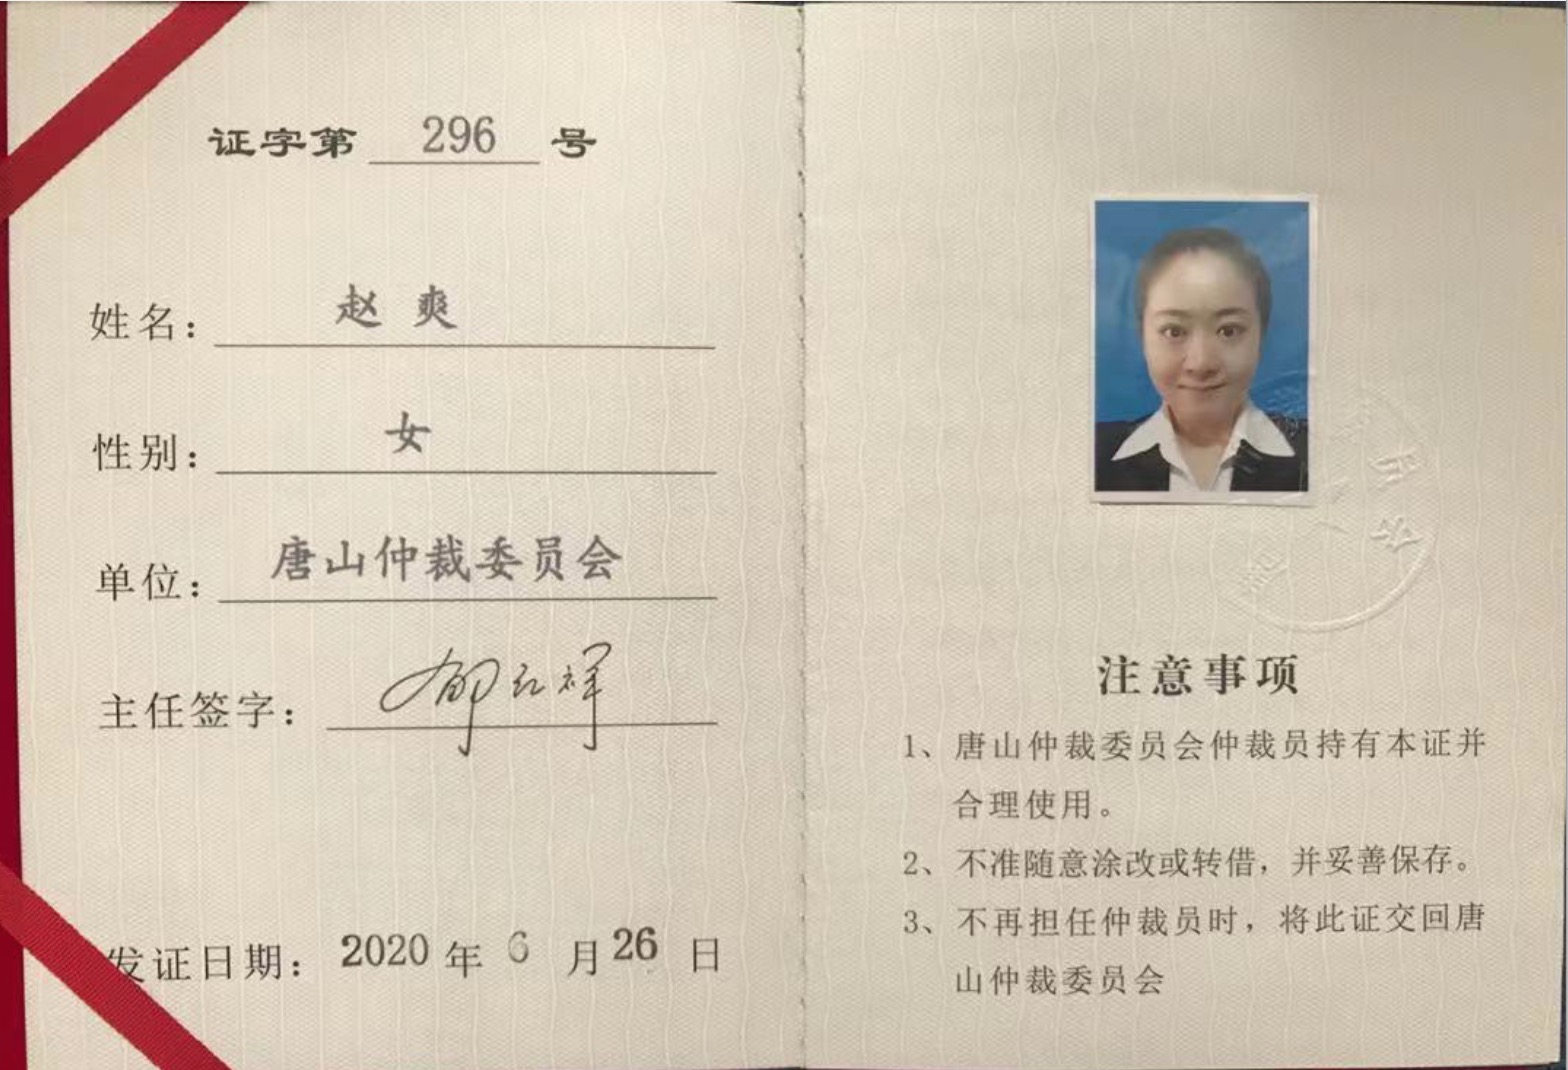 证字第 296 号
姓名：赵爽
性别：女
单位：唐山仲裁委员会
主任签字：
发证日期：2020年6月26日
注意事项
1、唐山仲裁委员会仲裁员持有本证并
合理使用。
2、不准随意涂改或转借，并妥善保存。
3、不再担任仲裁员时，将此证交回唐
山仲裁委员会